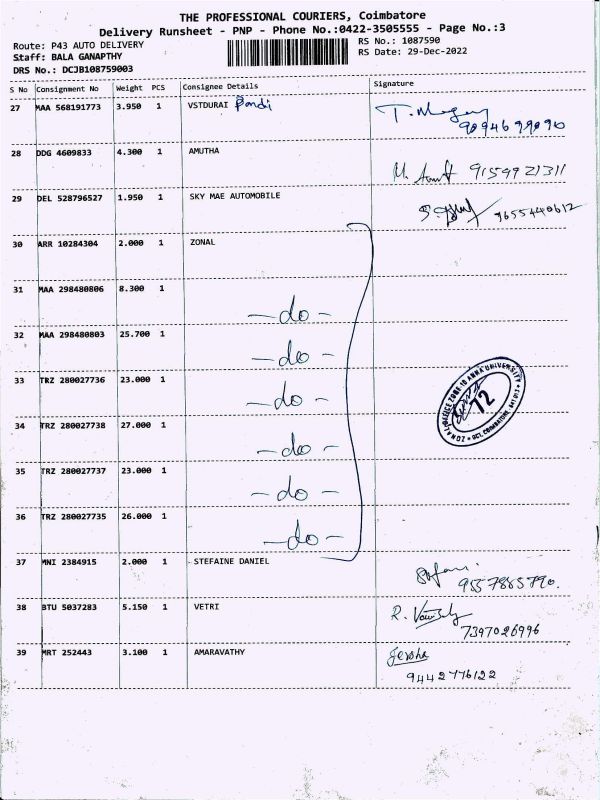 THE PROFESSIONAL COURIERS, Coimbatore
Delivery Runsheet - PNP - Phone No.:0422-3505555 - Page No.:3
Route: P43 AUTO DELIVERY RS No.: 1087590
Staff: BALA GANAPTHY RS Date: 29-Dec-2022
DRS No.: DCJB108759003
S No Consignment No Weight PCS Consignee Details Signature
27 MAA 568191773 3.950 1 VSTDURAI Pandi
28 DDG 4609833 4.300 1 AMUTHA
9159921311
29 DEL 528796527 1.950 1 SKY MAE AUTOMOBILE
9655440612
30 ARR 10284304 2.000 1 ZONAL
31 MAA 298480806 8.300 1
-do-
32 MAA 298480803 25.700 1
-do-
33 TRZ 280027736 23.000 1
-do-
34 TRZ 280027738 27.000 1
-do-
35 TRZ 280027737 23.000 1
-do-
36 TRZ 280027735 26.000 1
-do-
72
37 MNI 2384915 2.000 1 STEFAINE DANIEL
38 BTU 5037283 5.150 1 VETRI
7397026996
39 MRT 252443 3.100 1 AMARAVATHY
9442776122